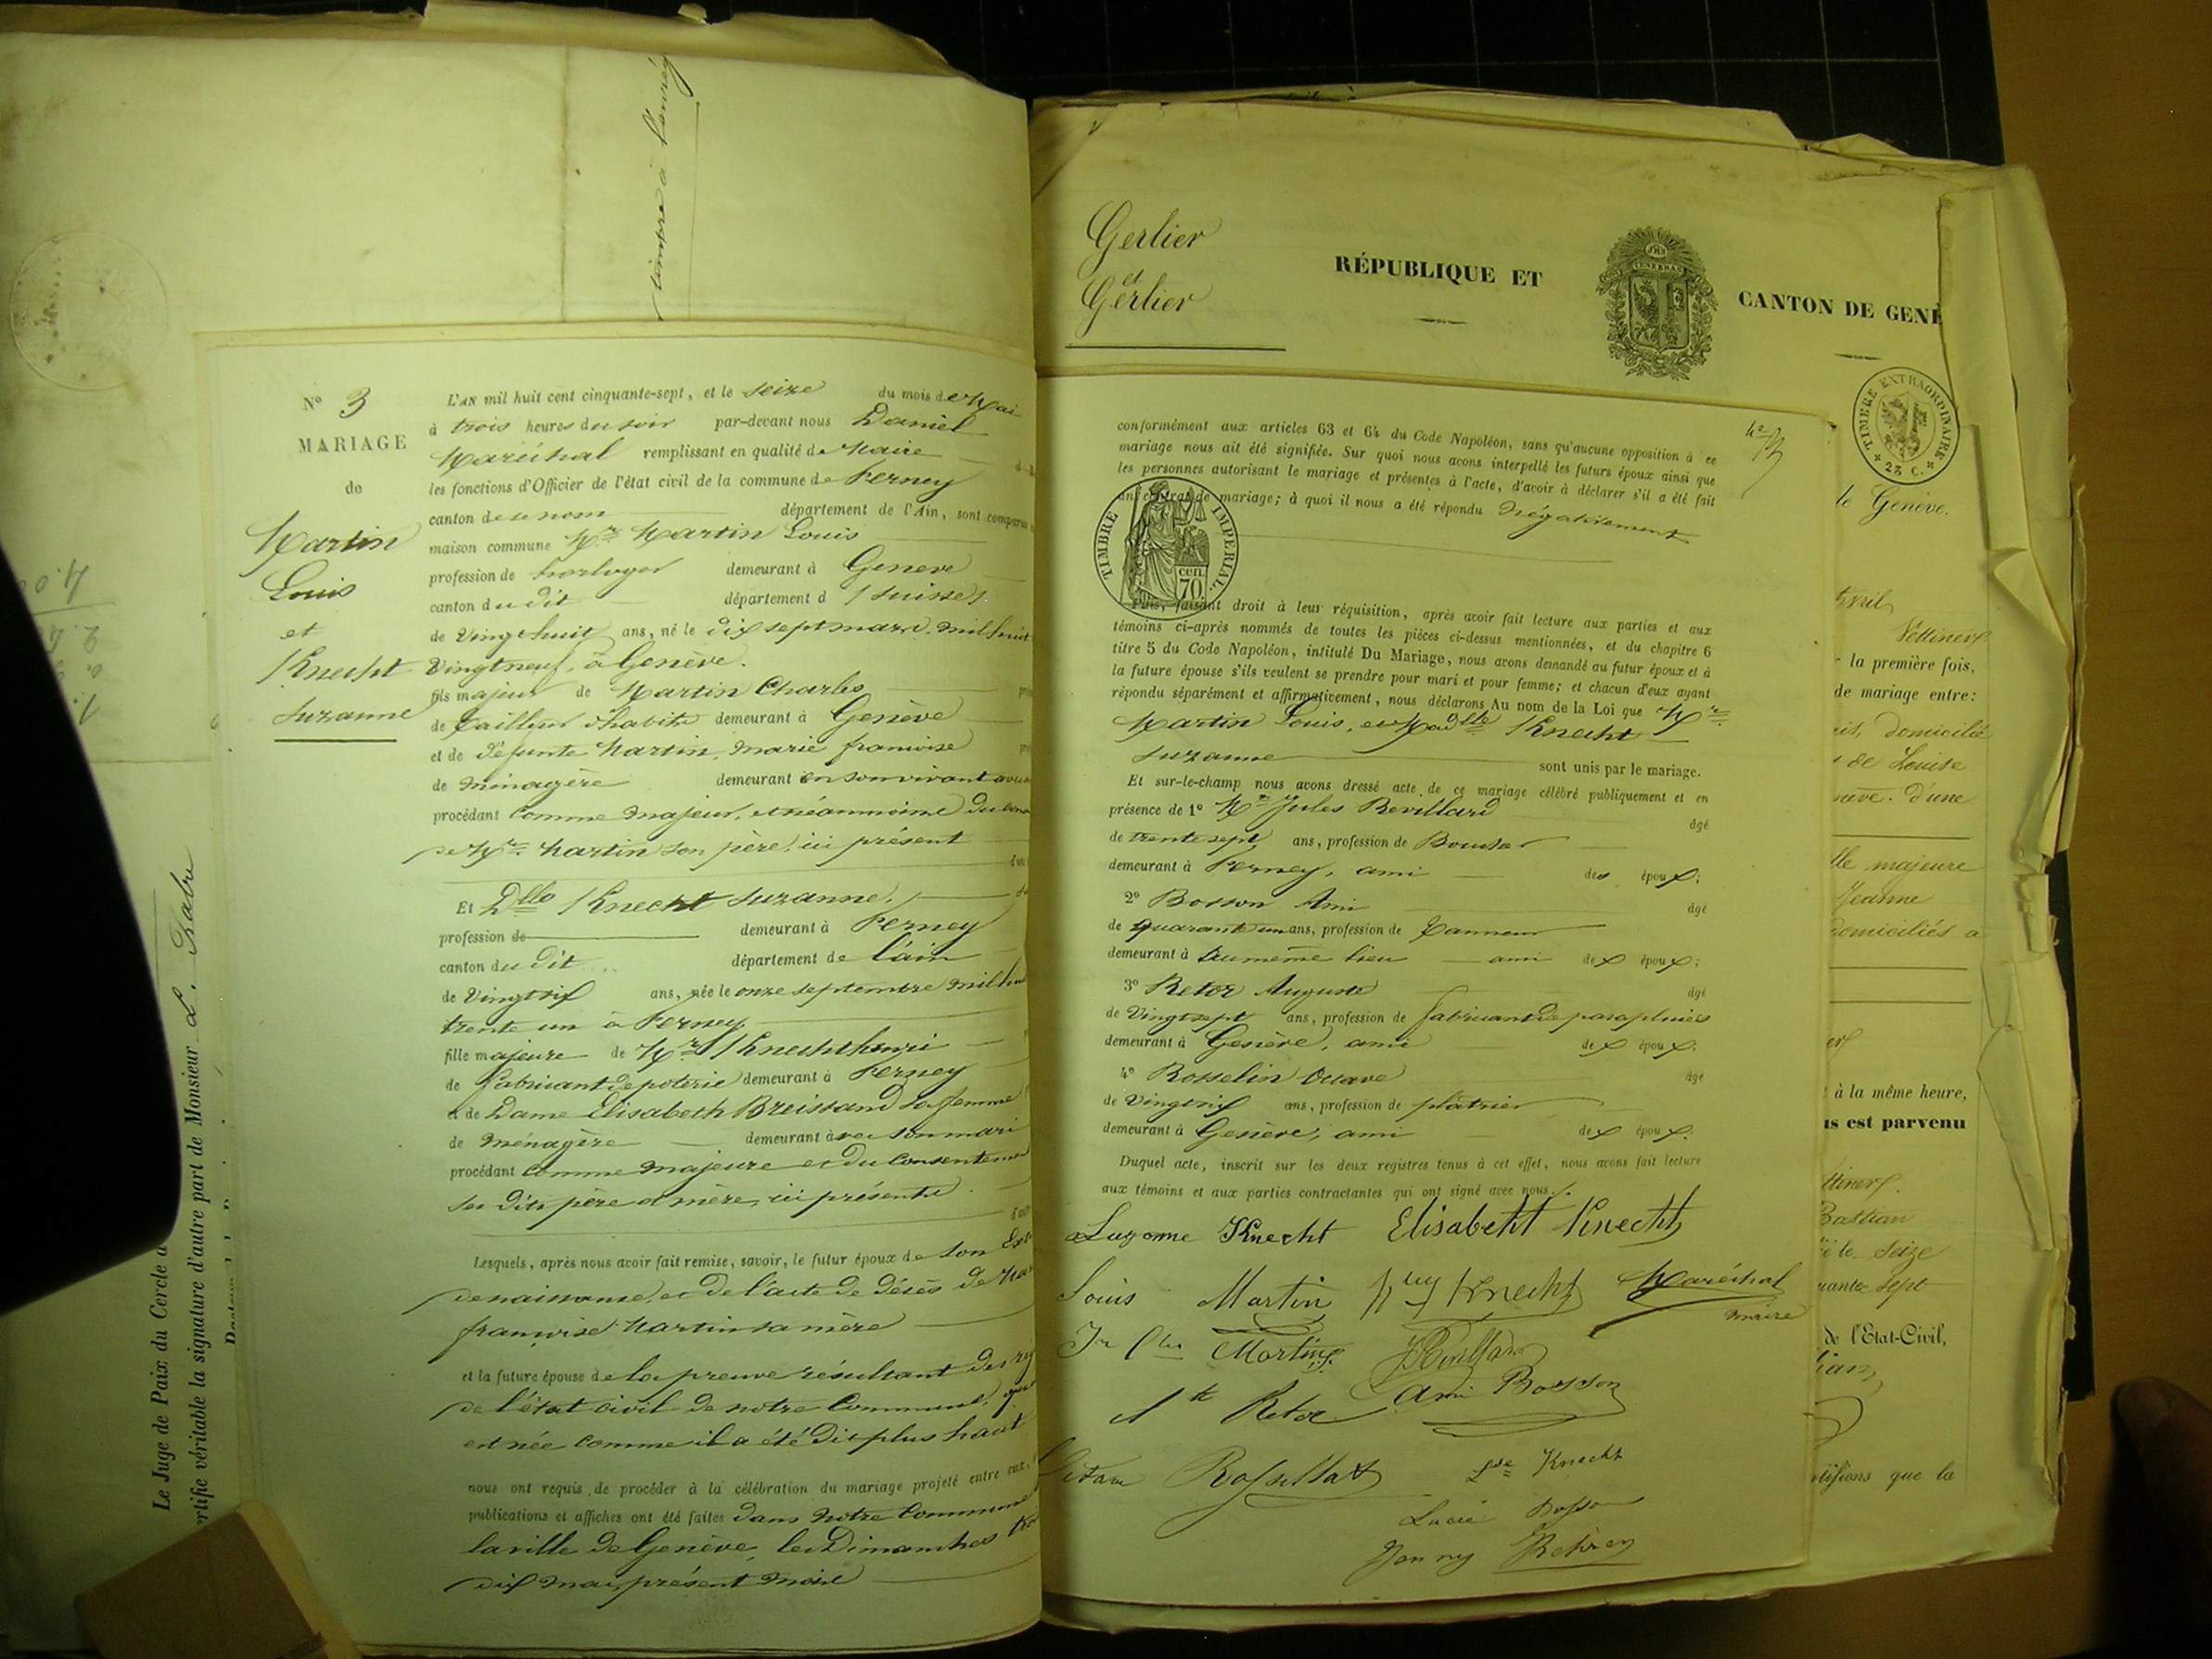 timbre à l'envers
Le Juge de Paix du Cercle
certifie véritable la signature d'autre part de Monsieur L.
N° 3
MARIAGE
de
Martin
Louis
et
Knecht
Suzanne
L'AN mil huit cent cinquante-sept, et le seize du mois de Mai
à trois heures du soir par-devant nous Daniel
Maréchal remplissant en qualité de Maire
les fonctions d'Officier de l'état civil de la commune de Ferney
canton de ce nom département de l'Ain, sont comparus
maison commune Mr Martin Louis
profession de horloger demeurant à Geneve
canton du dit département d (Suisse)
de Vingt huit ans, né le dix sept mars mil huit
Vingtneuf, à Genève.
fils majeur de Martin Charles
de Tailleur d'habits demeurant à Genève
et de défunte Martin, Marie françoise
de Ménagère demeurant en son vivant avec
procédant comme majeur, et néanmoins du
de Mr Martin son père, ici présent
Et Dlle Knecht Suzanne,
profession de demeurant à Ferney
canton du dit département de l'ain
de Vingt six ans, née le onze septembre mil huit
trente un à Ferney
fille majeure de Mr Knecht henri
de fabricant de poterie demeurant à Ferney
et de Dame Elisabeth Breissand sa femme
de Ménagère demeurant avec son mari
procédant comme majeure et du Consentement
ses dits père et mère, ici présents
Lesquels, après nous avoir fait remise, savoir, le futur époux de son
de naissance, et de l'acte de décès de
françoise Martin sa mère
et la future épouse de la preuve résultant des
de l'état civil de notre Commune,
est née comme il a été dit plus haut
nous ont requis de procéder à la célébration du mariage projeté entre eux,
publications et affiches ont été faites dans notre Commune
la ville de Genève, les Dimanches
dix mai, présent mois
Gerlier
et
Gerlier
RÉPUBLIQUE ET CANTON DE GENÈ
TIMBRE EXTRAORDINAIRE
25 C.
conformément aux articles 63 et 64 du Code Napoléon, sans qu'aucune opposition à ce
mariage nous ait été signifiée. Sur quoi nous avons interpellé les futurs époux ainsi que
les personnes autorisant le mariage et présentes à l'acte, d'avoir à déclarer s'il a été fait
un contrat de mariage; à quoi il nous a été répondu négativement
TIMBRE IMPERIAL
cen. 70
Puis, faisant droit à leur réquisition, après avoir fait lecture aux parties et aux
témoins ci-après nommés de toutes les pièces ci-dessus mentionnées, et du chapitre 6
titre 5 du Code Napoléon, intitulé Du Mariage, nous avons demandé au futur époux et à
la future épouse s'ils veulent se prendre pour mari et pour femme; et chacun d'eux ayant
répondu séparément et affirmativement, nous déclarons Au nom de la Loi que Mr
Martin Louis, et Madlle Knecht
Suzanne sont unis par le mariage.
Et sur-le-champ nous avons dressé acte de ce mariage célébré publiquement et en
présence de 1° Mr Jules Revillard âgé
de trente sept ans, profession de
demeurant à Ferney, ami des époux;
2° Bosson Ami âgé
de quarante un ans, profession de Tanneur
demeurant à au même lieu ami des époux;
3° Retor Auguste âgé
de Vingt sept ans, profession de fabricant de parapluies
demeurant à Genève, ami des époux.
4° Rosselin Octave âgé
de Vingt six ans, profession de plâtrier
demeurant à Genève, ami des époux.
Duquel acte, inscrit sur les deux registres tenus à cet effet, nous avons fait lecture
aux témoins et aux parties contractantes qui ont signé avec nous.
Suzanne Knecht Elisabeth Knecht
Louis Martin Hry Knecht Maréchal
maire
Martin
Ami Bosson
Retor
Knecht
Lucie Bosson
Jenny
de Genève.
Avril
la première fois,
de mariage entre:
domicilié
de Louise
nève. d'une
lle majeure
Jeanne
domiciliés à
à la même heure,
us est parvenu
Bastian
le Seize
quante sept
de l'Etat-Civil,
tifions que la